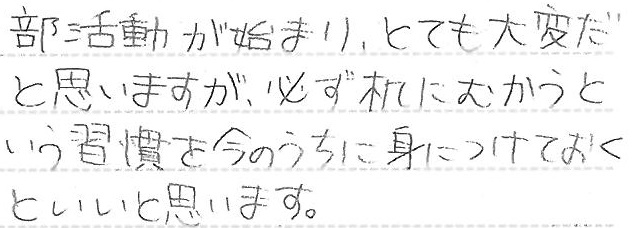 部活動が始まり、とても大変だ
と思いますが、必ず机にむかうと
いう習慣を今のうちに身につけておく
といいと思います。